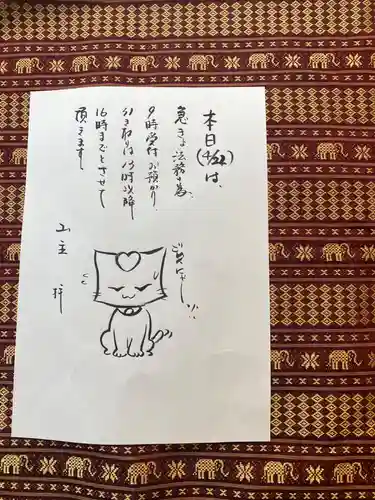 本日(4/24)は、
急きょ法務の為、
9時受付お預かり、
引き取りは13時以降
16時までとさせて
頂きます
ごめんにゃし
山主 拝